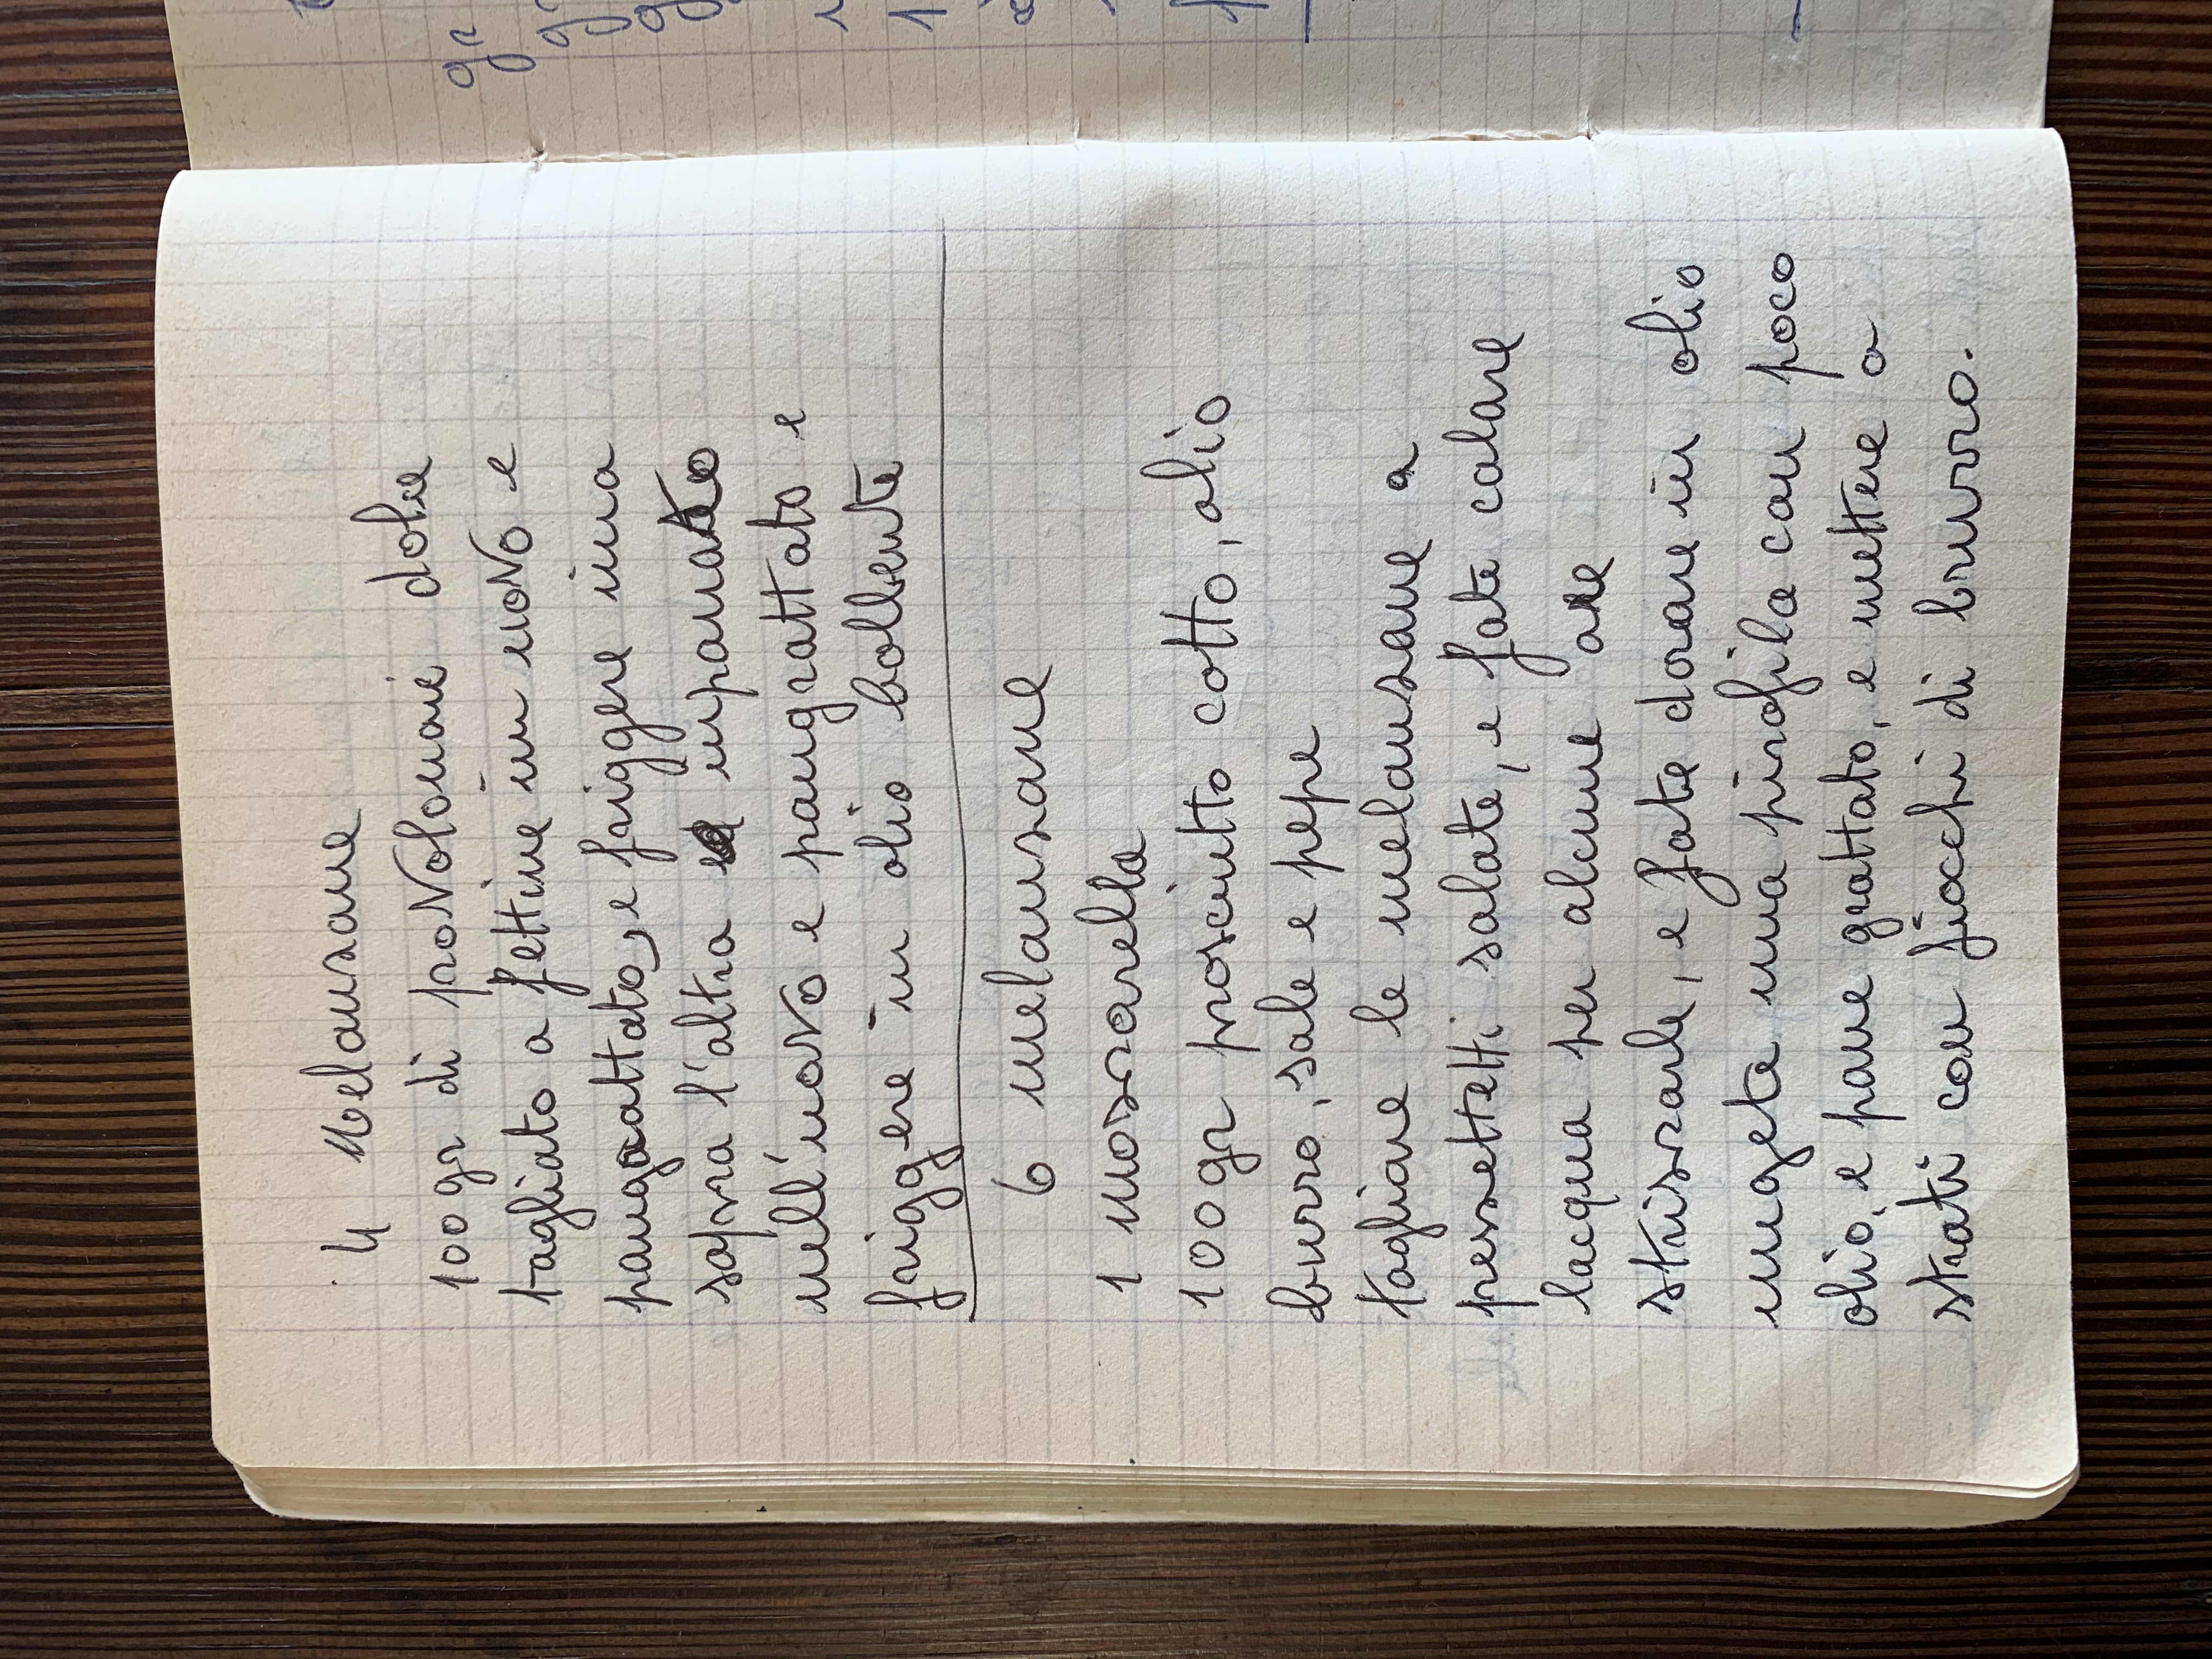 4 Melanzane
100 gr di provolone dolce
tagliato a fettine un uovo e
pangrattato, e friggere una
sopra l'altra inpanato
nell'uovo e pangrattato e
friggere in olio bollente
6 melanzane
1 mozzarella
100 gr prosciutto cotto, olio
burro, sale e pepe
tagliare le melanzane a
pezzettetti salate, e fate calare
lacqua per alcune ore
strizzarle, e fate dorare in olio
ungete una pirofila con poco
olio, e pane grattato, e mettere a
strati con fiocchi di brurro.
gr
gr
g
1